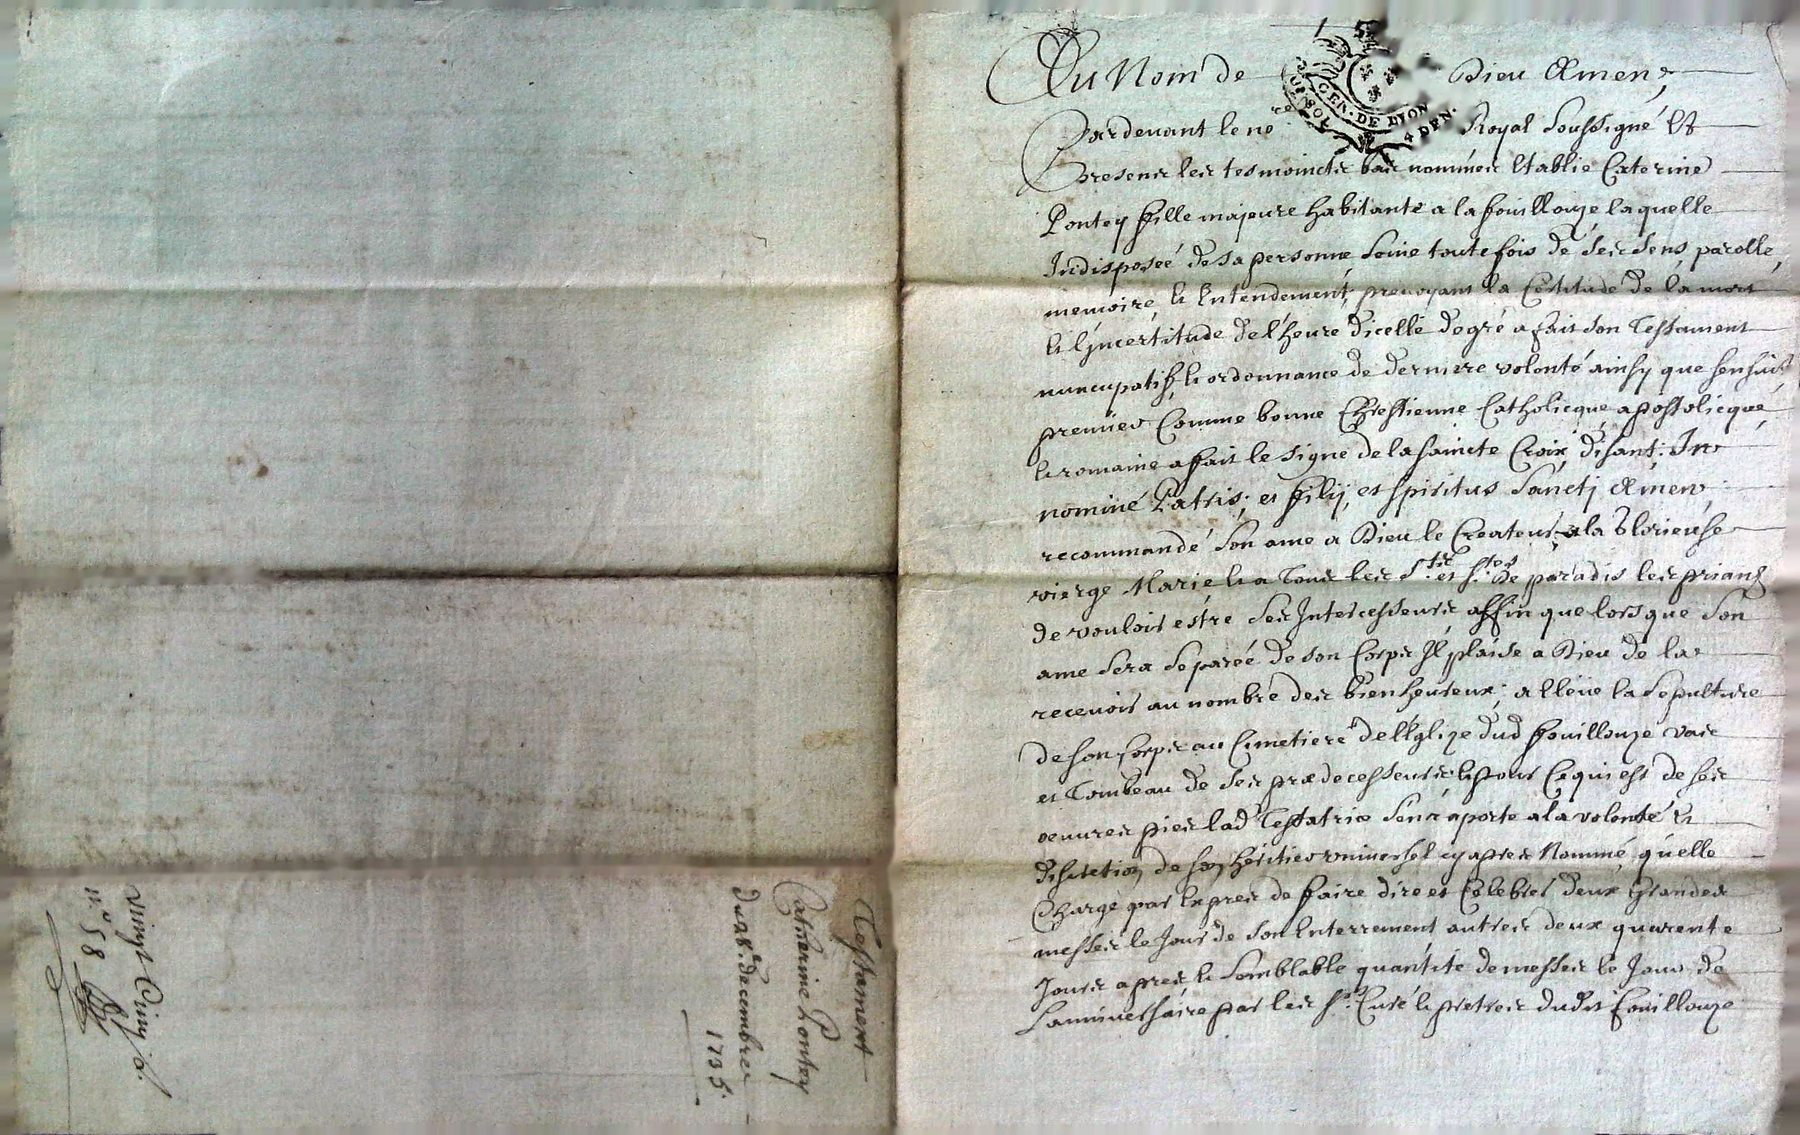 Au Nom de Dieu Amen,
GEN. DE DION
4 DEN.
Pardevant le nore Royal Soussigné Et
Presens les tesmoincts bas nommes Etablie Caterine
Pontey fille majeure habitante a la fouillouze laquelle
Indisposeé de sa personne Seine toutefois de Ses Sens, parolle,
memoire, Et Entendement, prevoyant la Certitude de la mort
Et l'jncertitude de l'heure d'icelle de gré a fait son Testament
nuncupatif, Et ordonnance de derniere volonté ainsy que sensuit
premier Comme bonne Chrestienne Catholicque, apostolicque,
Et romaine a fait le signe de la saincte Croix disant: In
nominé Patris, et filij, et spiritus Sanctj Amen,
recommandé Son ame a Dieu le Createur, a la Glorieuse
vierge Marie Et a Tous les Sts et Stes de paradis les priant
de vouloir estre Ses Intercesseurs affin que lorsque Son
ame Sera Separeé de son Corps Il plaise a Dieu de la
recevoir au nombre des bienheureux; a lleüe la Sepulture
de son corps au Cimetiere de l'Eglize dud fouillouze vas
et Tombeau de Ses prædecesseurs, Et pour Ce qui est de ses
oeuvres pies lad Testatrice S'en raporte a la volonté Et
discretion de son heritier universel cyapres Nommé, qu'elle
Charge par Expres de faire dire et Celebrer deux Grandes
messes le Jour de son Enterrement autres deux quarente
Jours apres Et Semblable quantité de messes le Jour de
Lanniversaire par les sr. Curé Et pretres dudit fouillouze
Testament
Catherine Pontey
du 28e. decembre
1735.
n.o 58